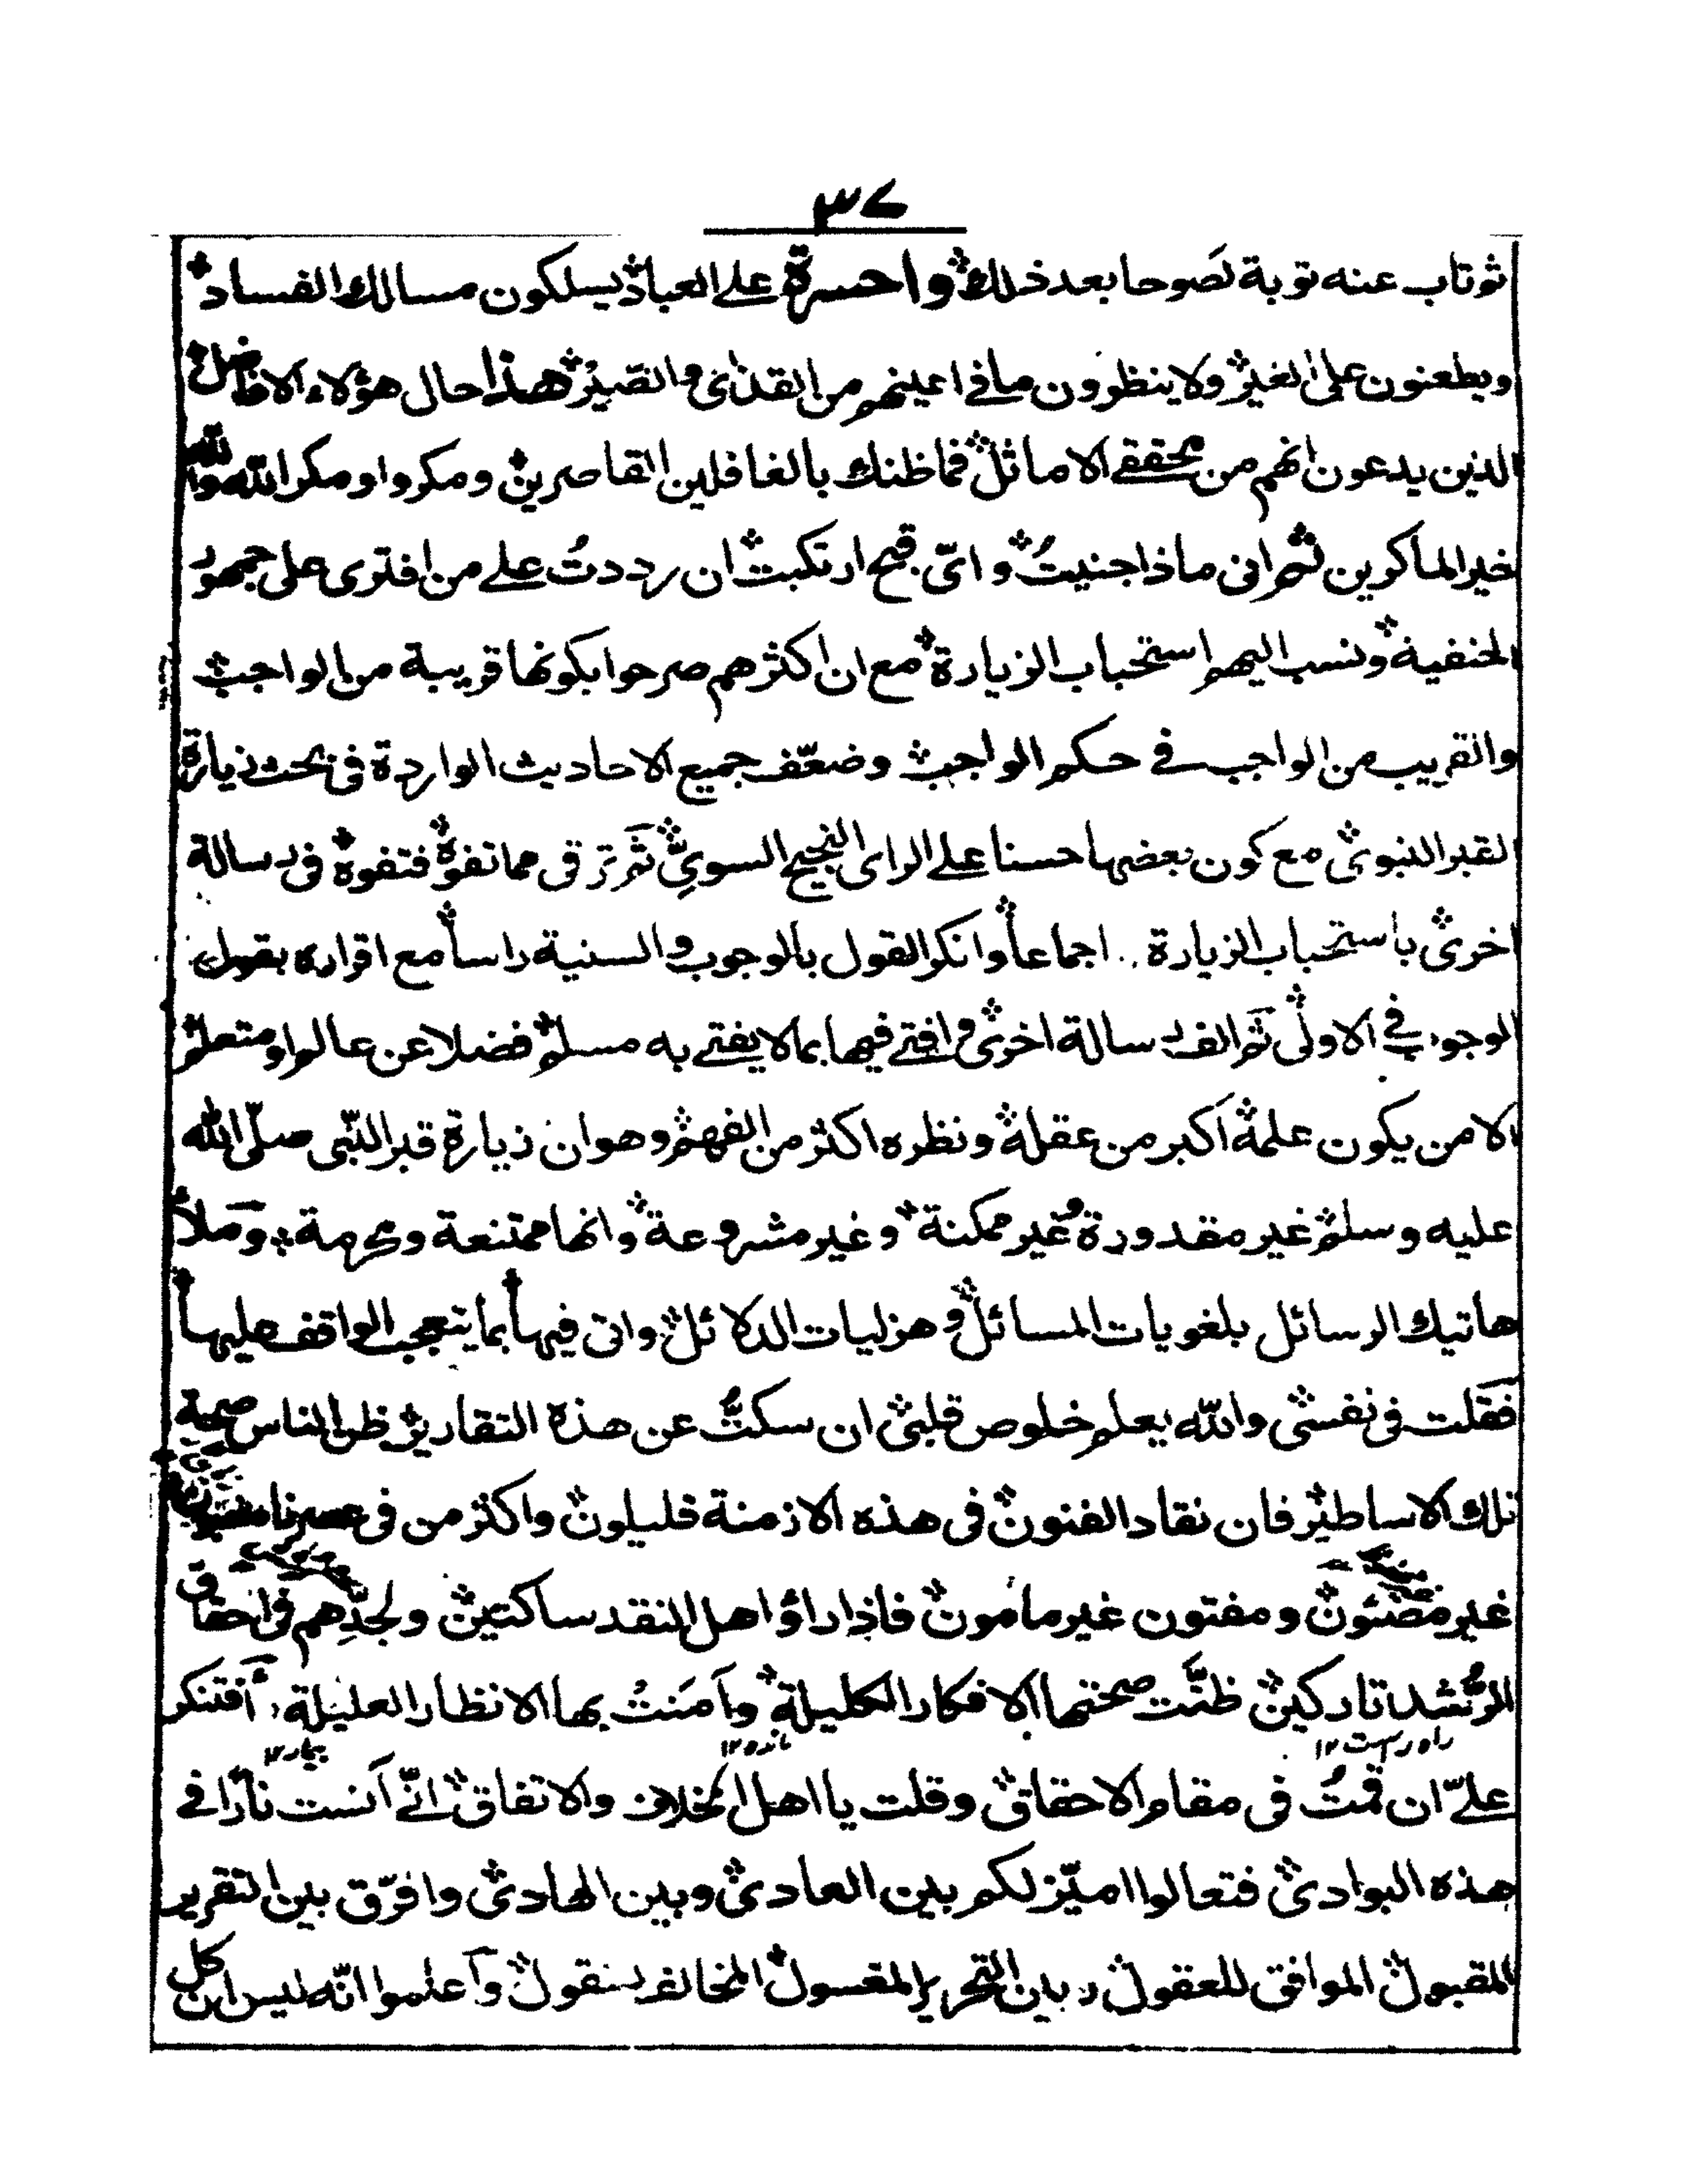 ٣٧
ثم تاب عنه توبة نصوحا بعد ذلك واحسرة على العباد يسلكون مسالك الفساد
ويطعنون على الغير ولا ينظرون ما فى اعينهم من القذى والضير هذا حال هؤلاء الافاضل
الذين يدعون انهم من محققى الاماثل فما ظنك بالغافلين القاصرين ومكروا ومكر الله والله
خير الماكرين ثم انى ماذا جنيتُ واىّ قبح ارتكبت ان رددتُ على من افترى على جمهور
الحنفية ونسب اليهم استحباب الزيارة مع ان اكثرهم صرحوا بكونها قريبة من الواجب
والقريب من الواجب فى حكم الواجب وضعّف جميع الاحاديث الواردة فى بحث زيارة
القبر النبوى مع كون بعضها حسنا على الراى النجيح السوىّ ثم ترقى مما تفوه فتفوه فى رسالة
اخرى باستحباب الزيارة اجماعا وانكر القول بالوجوب والسنية راسا مع اقراره بقول
الوجوب فى الاولى ثم الف رسالة اخرى وافتى فيها بما لا يفتى به مسلم فضلا عن عالم او متعلم
الا من يكون علمه اكبر من عقله ونظره اكثر من الفهم وهو ان زيارة قبر النبى صلّى الله
عليه وسلم غير مقدورة غير ممكنة وغير مشروعة وانها ممتنعة ومحرمة وملأ
هاتيك الرسائل بلغويات المسائل وهزليات الدلائل واتى فيها بما يتعجب الواقف عليها
فقلت فى نفسى والله يعلم خلوص قلبى ان سكتُّ عن هذه التقارير ظن الناس صحة
تلك الاساطير فان نقاد الفنون فى هذه الازمنة قليلون واكثر من فى عصرنا
غير ومفتون غير مأمون فاذا راؤا اهل النقد ساكتين ولجدِّهم فى احقاق
المرشد تاركين ظنَّت صحتها الافكار الكليلة وآمَنتْ بها الانظار العليلة أفتنكر
راه راست ١٢ مانده ١٢ بيمار ١٢
علىّ ان قمتُ فى مقام الاحقاق وقلت يا اهل الخلاف والاتفاق انّى آنست نارًا فى
هذه البوادى فتعالوا اميّز لكم بين العادى وبين الهادى وافرّق بين التقرير
المقبول الموافق للعقول وبين التحرير المغسول المخالف للمنقول واعلموا انّه ليس ان كل